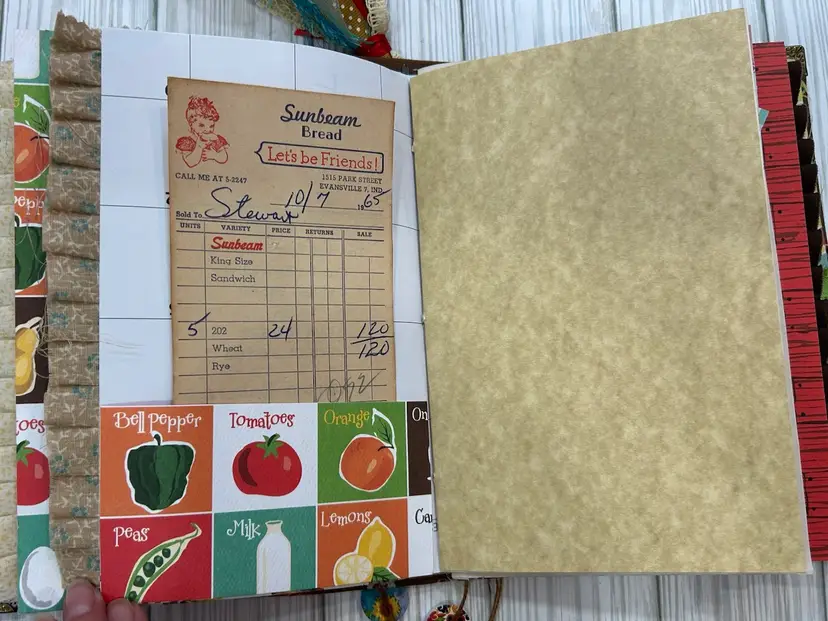 Sunbeam
Bread
Let's be Friends!
CALL ME AT 5-2247
1515 PARK STREET
EVANSVILLE 7, IND.
10/7 1965
Sold To Stewart
UNITS VARIETY PRICE RETURNS SALE
Sunbeam
King Size
Sandwich
5 202 24 120
Wheat 120
Rye
Bell Pepper Tomatoes Orange On
Peas Milk Lemons Ca
toes